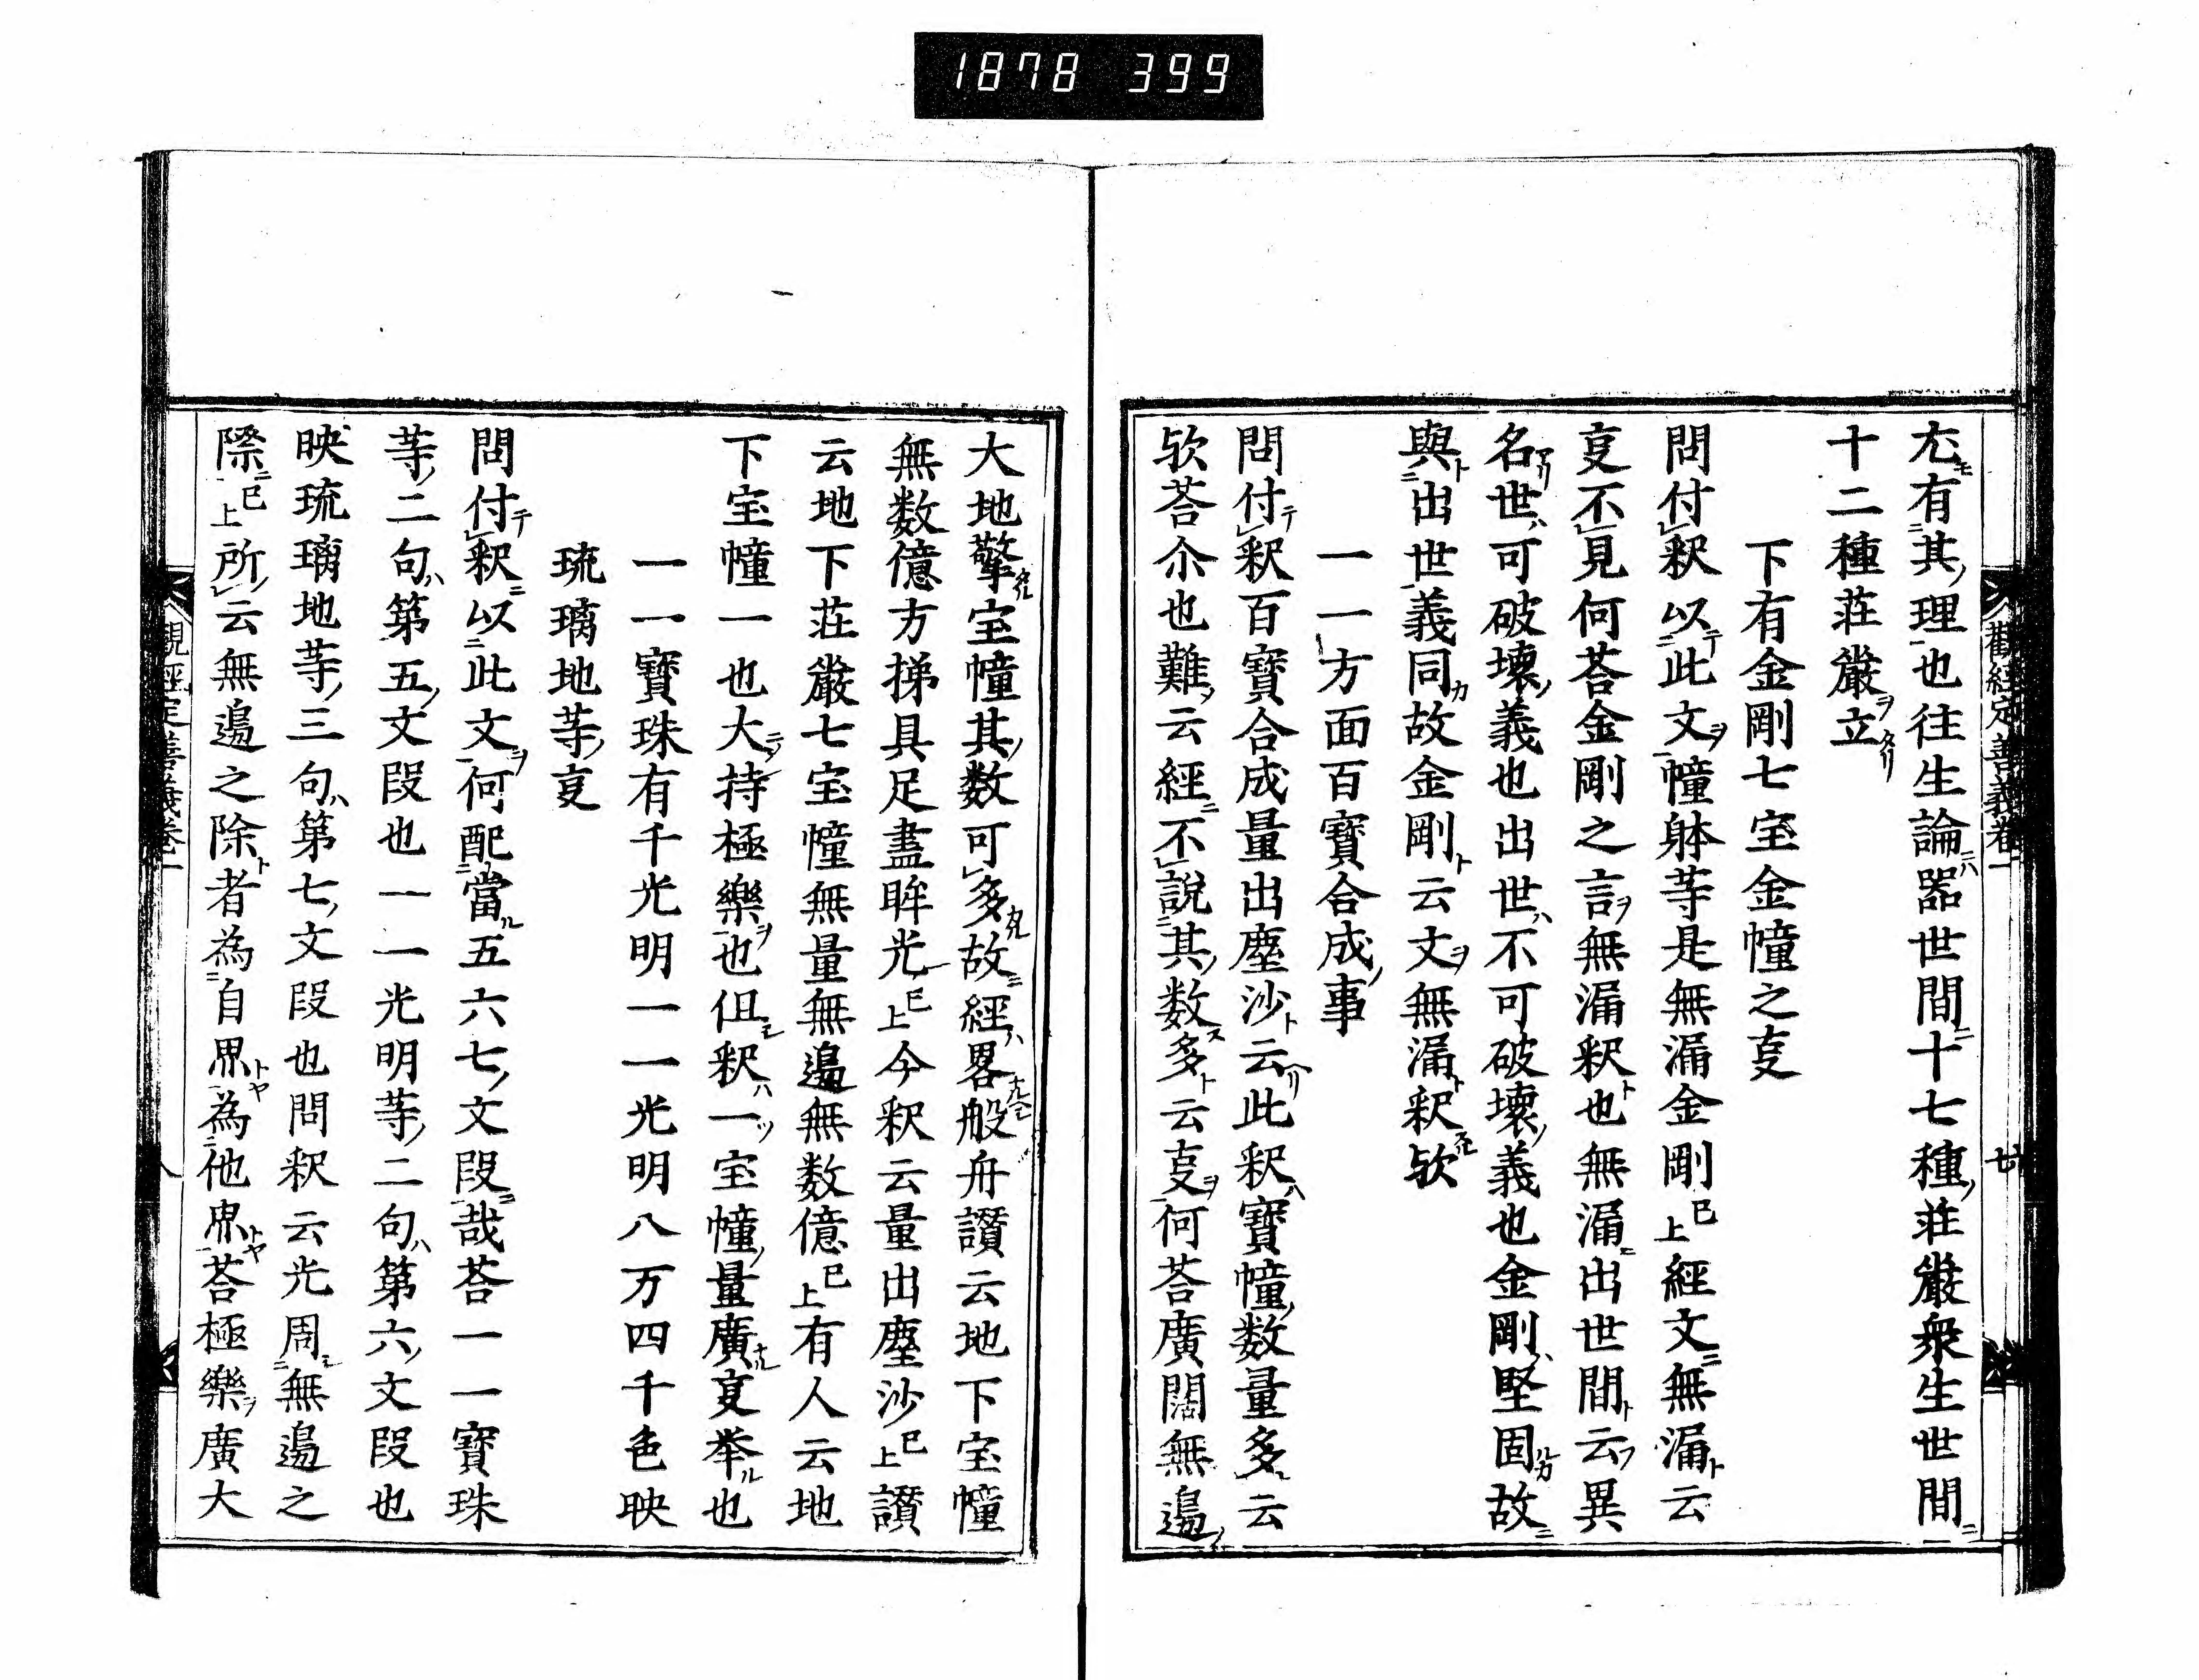 1878 399
觀經定善義卷一
七
尤有其理也往生論器世間十七種荘嚴衆生世間
十二種荘嚴立
下有金剛七宝金幢之㕝
問付釈以此文幢躰䓁是無漏金剛已上經文無漏云
㕝不見何荅金剛之言無漏釈也無漏出世間云異
名世可破壊義也出世不可破壊義也金剛堅固故
與出世義同故金剛云文無漏釈欤
一一方面百寶合成事
問付釈百寶合成量出塵沙云此釈寶幢数量多云
欤荅尒也難云經不說其数多云㕝何荅廣濶無邉
大地擎宝幢其数可多故經畧般舟讃云地下宝幢
無数億方揥具足盡眸光已上今釈云量出塵沙已上讃
云地下荘嚴七宝幢無量無邉無数億已上有人云地
下宝幢一也大持極樂也但釈一宝幢量廣㕝举也
一一寶珠有千光明一一光明八万四千色映
琉璃地䓁㕝
問付釈以此文何配當五六七文段哉荅一一寶珠
䓁二句第五文段也一一光明䓁二句第六文段也
映琉璃地䓁三句第七文段也問釈云光周無邉之
際已上所云無邉之除者為自界為他界荅極樂廣大
觀經定善義卷一
八